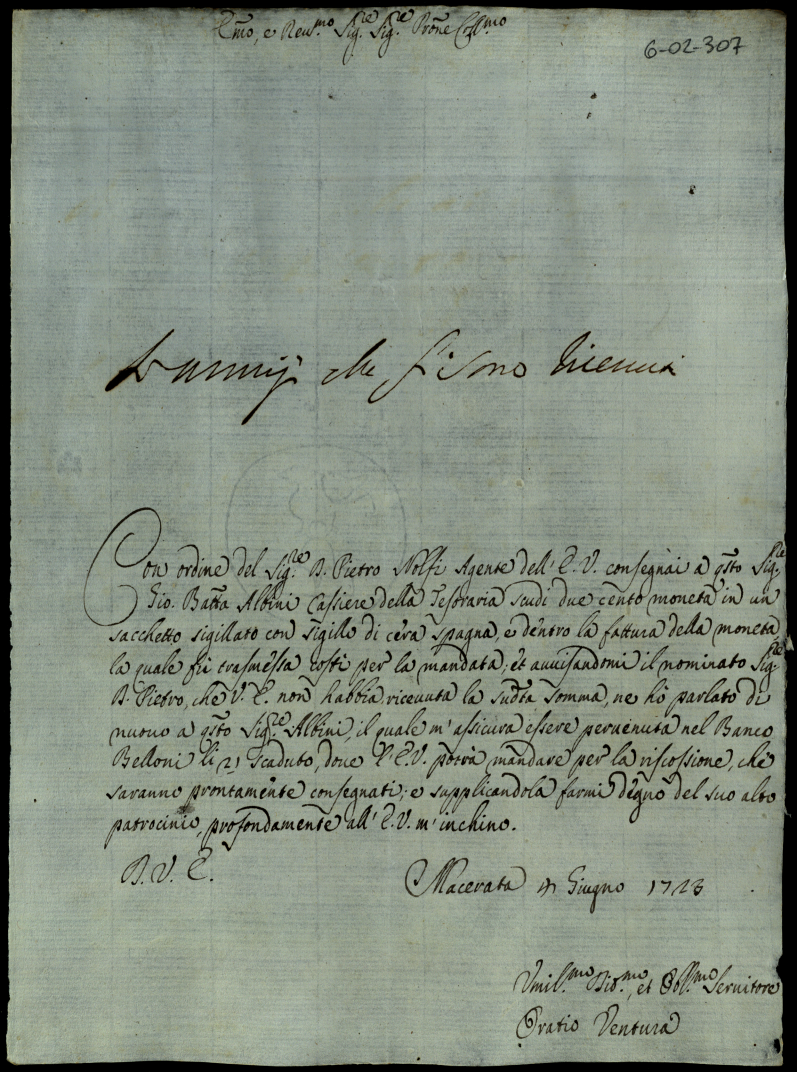 Emo, e Reu.mo Sig.re Sig.re Prone Coll.mo
6-02-307
che si sono
Con ordine del Sig.re D. Pietro Nolfi Agente dell' E.V. consegnai a qsto Sig.re
Gio. Batta Albini Cassiere della Tesoraria scudi due cento moneta in un
sacchetto sigillato con sigillo di cera spagna, e dentro la fattura della moneta
la quale fù trasmessa costì per la mandata; et auuisandomi il nominato Sig.re
D. Pietro, che V. E. non habbia riceuuta la sudta somma, ne hò parlato di
nuouo a qsto Sig.re Albini, il quale m' assicura essere peruenuta nel Banco
Belloni li 21 scaduto, doue l' E.V. potrà mandare per la riscossione, che
saranno prontamente consegnati; e supplicandola farmi degno del suo alto
patrocinio, profondamente all' E.V. m' inchino.
D. V. E.
Macerata 4 Giugno 1723
Vmil.mo Diu.mo, et Obl.mo Seruitore
Oratio Ventura